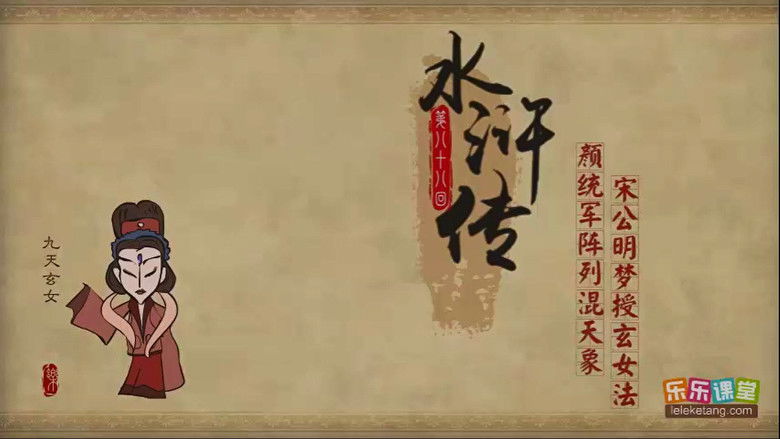 水浒传
第八十八回
颜统军阵列混天象
宋公明梦授玄女法
九天玄女
乐乐课堂
leleketang.com